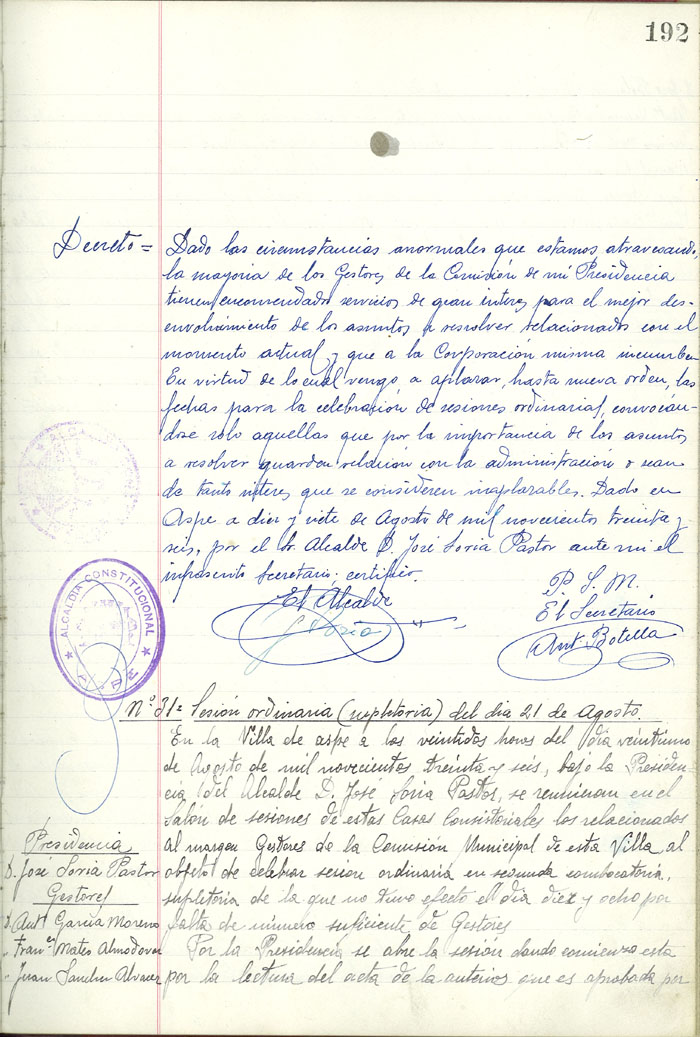 192
Decreto = Dado las circunstancias anormales que estamos atravesando,
la mayoria de los Gestores de la Comisión de mi Presidencia
tienen encomendado servicios de gran interes para el mejor des-
envolvimiento de los asuntos a resolver relacionados con el
momento actual y que a la Corporación misma incumben
En virtud de lo cual vengo a aplazar, hasta nueva orden, las
fechas para la celebración de sesiones ordinarias, convocán-
dose solo aquellas que por la importancia de los asuntos
a resolver guarden relación con la administración o sean
de tanto interes que se consideren inaplazables. Dado en
Aspe a diez y siete de Agosto de mil novecientos treinta y
seis, por el Sr. Alcalde D. José Soria Pastor ante mi el
infrascrito Secretario; certifico.
El Alcalde
J Soria
P. S. M.
El Secretario
Ant. Botella
ALCALDIA CONSTITUCIONAL
Nº 31 = Sesión ordinaria (supletoria) del dia 21 de Agosto.
En la Villa de aspe a los veintidos horas del dia veintiuno
de Agosto de mil novecientos treinta y seis, bajo la Presiden-
cia del Alcalde D. José Soria Pastor, se reunieran en el
Salón de sesiones de estas Casas Consistoriales los relacionados
al margen Gestores de la Comisión Municipal de esta Villa al
objeto de celebrar sesion ordinaria en segunda convocatoria,
supletoria de la que no tuvo efecto el dia diez y ocho por
falta de número suficiente de Gestores
Por la Presidencia se abre la sesión dando comienzo esta
por la lectura del acta de la anterior que es aprobada por
Presidencia
D. José Soria Pastor
Gestores
D. Antº Garcia Moreno
" Franco Mateo Almodovar
" Juan Sanchez Alvarez